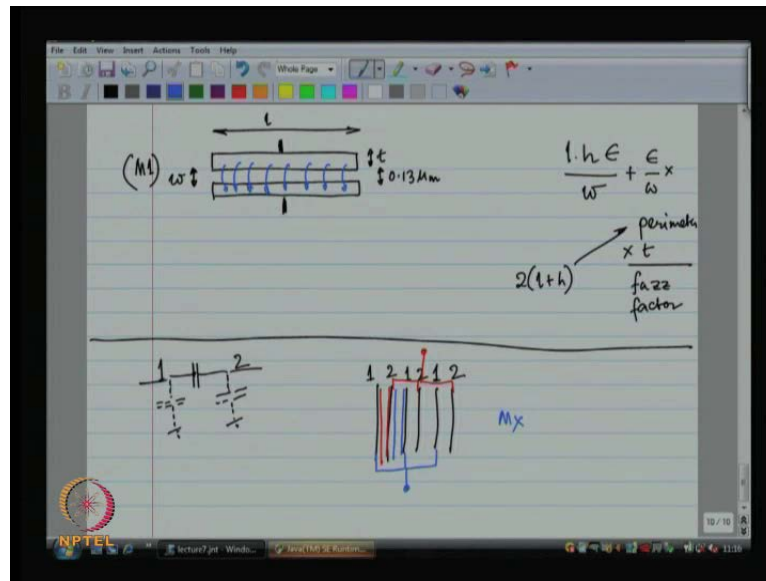 File Edit View Insert Actions Tools Help
Whole Page
B I
l
(M1) w t
0.13µm
l.h ϵ / w + ϵ / w x
perimeter
x t
2(l+h)
fazz
factor
1 2
1 2 1 2 1 2
Mx
NPTEL
10 / 10
lecture7.jnt - Windo...
Java(TM) SE Runtim...
11:16